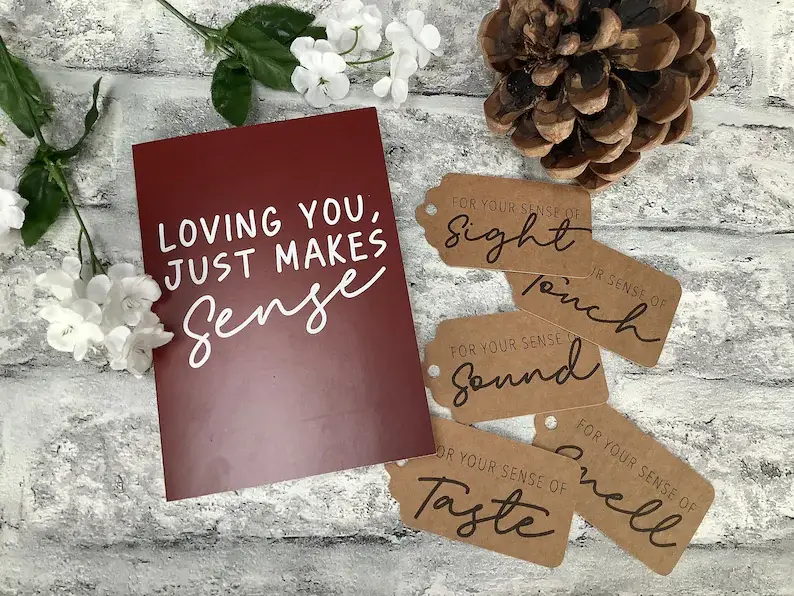 LOVING YOU,
JUST MAKES
Sense
FOR YOUR SENSE OF
Sight
UR SENSE OF
Touch
FOR YOUR SENSE O
Sound
FOR YOUR SENSE OF
Smell
OR YOUR SENSE OF
Taste